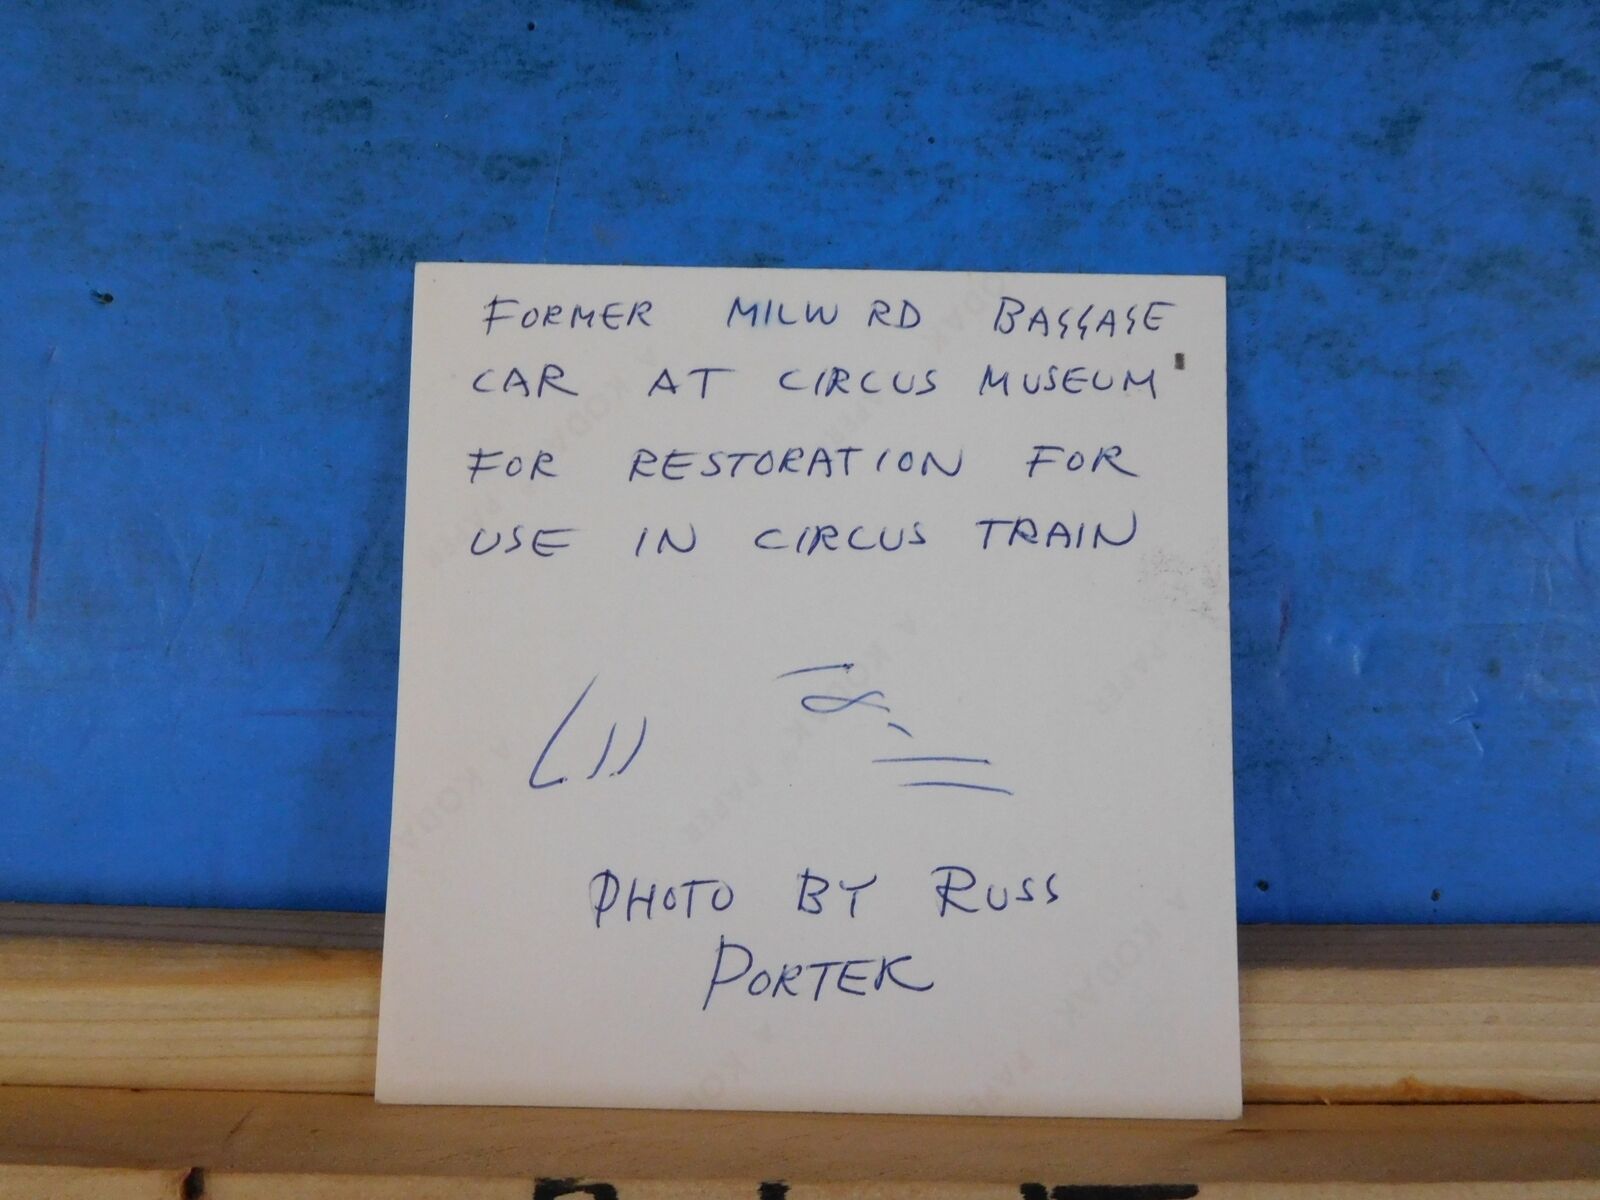 FORMER MILW RD BAGGAGE
CAR AT CIRCUS MUSEUM
FOR RESTORATION FOR
USE IN CIRCUS TRAIN
PHOTO BY RUSS
PORTEK